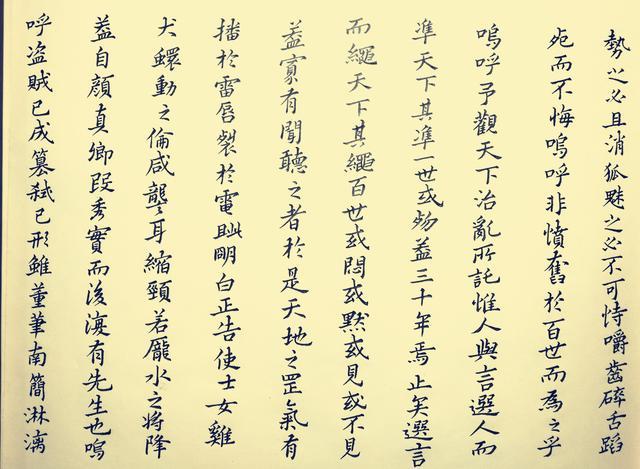 勢之必且消狐魅之必不可恃嚼齒碎舌蹈
死而不悔嗚呼非憤奮於百世而為之乎
嗚呼予觀天下治亂所託惟人與言選人而
準天下其準一世或殤蓋三十年焉止矣選言
而繩天下其繩百世或悶或默或見或不見
蓋寡有聞聽之者於是天地之罡氣有
播於雷唇裂於電眦明白正告使士女雞
犬蠉動之倫咸聾耳縮頸若龐水之將降
蓋自顏真卿段秀實而後海有先生也嗚
呼盜賊已成篡弒已形雖董筆南簡淋漓